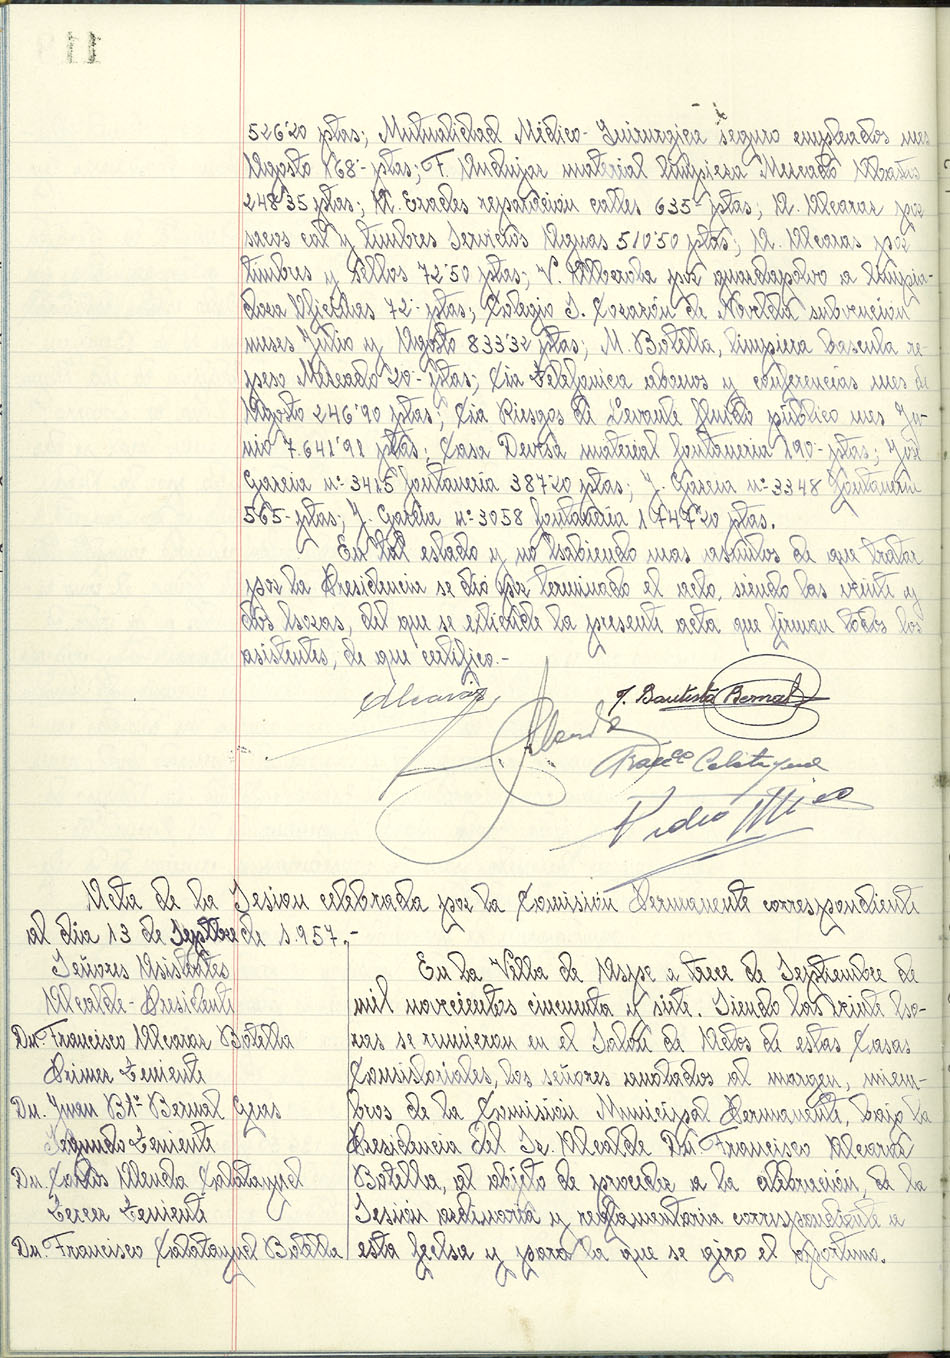 526'20 ptas; Mutualidad Médico-Quirurgica seguro empleados mes
Agosto 168- ptas; F. Andujar material limpieza Mercado Abastos
248'35 ptas; A. Cracles reparación calles 635- ptas; A. Alcaraz por
sacos cal y timbres Servicios Aguas 510'50 ptas; A. Alcaraz por
timbres y sellos 72'50 ptas; V. Alberola por guardapolvo a limpia-
dora Objetos 72- ptas; Colegio S. Corazón de Novelda subvención
meses Julio y Agosto 833'32 ptas; M. Botella, limpieza bascula re-
peso Mercado 20- ptas; Cia Telefonica abonos y conferencias mes de
Agosto 246'90 ptas; Cia Riegos de Levante fluido público mes Ju-
nio 7.641'91 ptas; Casa Devesa material fontaneria 190- ptas; José
Garcia nº 3415 fontaneria 387'20 ptas; J. Garcia nº 3348 fontaneria
565- ptas; J. Garcia nº 3058 fontaneria 1.747'20 ptas.
En tal estado y no habiendo mas asuntos de que tratar
por la Presidencia se dió por terminado el acto, siendo las veinte y
dos horas, del que se extiende la presente acta que firman todos los
asistentes, de que certifico.-
Alcaraz
J. Bautista Bernal
Almenda
Franco Calatayud
Pedro Mico
Acta de la Sesion celebrada por la Comisión Permanente correspondiente
al dia 13 de Septbre de 1.957.-
Señores Asistentes
Alcalde-Presidente
Dn. Francisco Alcaraz Botella
Primer Teniente
Dn. Juan Btª Bernal Gras
Segundo Teniente
Dn. Carlos Almenda Calatayud
Tercer Teniente
Dn. Francisco Calatayud Botella
En la Villa de Aspe a trece de Septiembre de
mil novecientos cincuenta y siete. Siendo las veinte ho-
ras se reunieron en el Salón de Actos de estas Casas
Consistoriales, los señores anotados al margen, miem-
bros de la Comisión Municipal Permanente, bajo la
Presidencia del Sr. Alcalde Dn. Francisco Alcaraz
Botella, al objeto de proceder a la celebración, de la
Sesión ordinaria y reglamentaria correspondiente a
esta fecha y para la que se giro el oportuno.